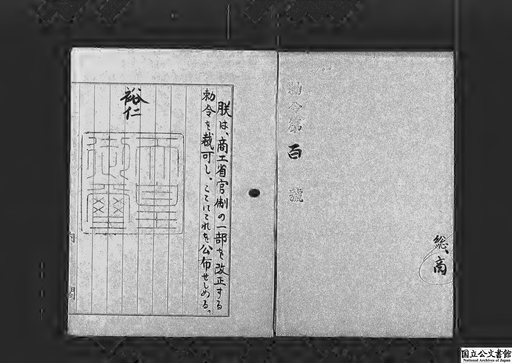 勅令第百號
総、商
朕は、商工省官制の一部を改正する
勅令を裁可し、ここにこれを公布せしめる。
裕仁
天皇
御璽
内閣
国立公文書館
National Archives of Japan